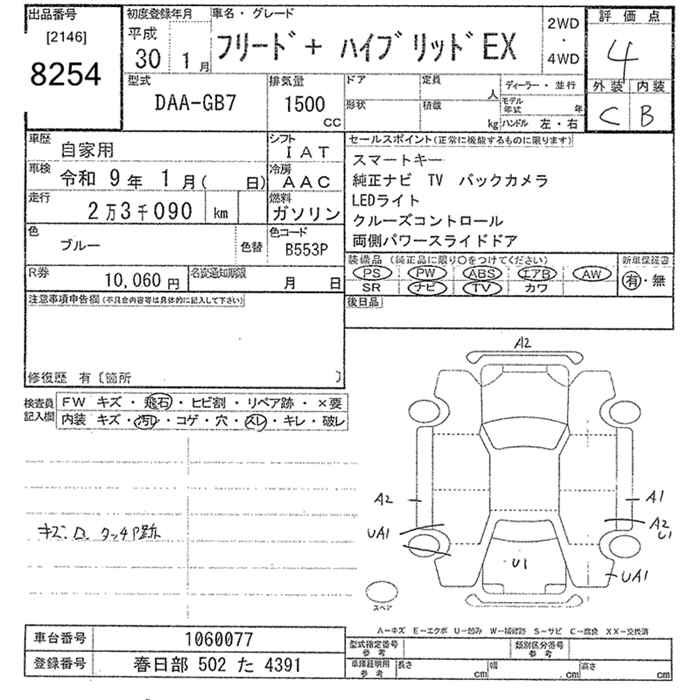 出品番号
[2146]
8254
初度登録年月
平成
30 1月
車名・グレード
フリード+ ハイブリッドEX
2WD
・
4WD
評価点
4
外装 内装
C B
型式
DAA-GB7
排気量
1500
CC
ドア
定員
人
形状
積載
kg
ディーラー・並行
モデル年式 年
ハンドル 左・右
車歴
自家用
シフト
IAT
車検
令和 9年 1月( 日)
冷房
AAC
走行
2万3千090 km
燃料
ガソリン
色
ブルー
色替
色コード
B553P
R券
10,060円
名変通知期限
月 日
セールスポイント(正常に機能するものに限ります)
スマートキー
純正ナビ TV バックカメラ
LEDライト
クルーズコントロール
両側パワースライドドア
装備品(純正品に限り○をつけてください)
PS PW ABS エアB AW
SR ナビ TV カワ
新車保証書
有・無
後日品
注意事項申告欄(不具合内容等は具体的に記入して下さい)
修復歴 有〔箇所 〕
検査員
記入欄
FW キズ・飛石・ヒビ割・リペア跡・×要
内装 キズ・汚レ・コゲ・穴・スレ・キレ・破レ
キズ・凹 タッチP跡
A2
A2
UA1
A1
A2
U1
U1
UA1
スペア
A―キズ E―エクボ U―凹み W―補修跡 S―サビ C―腐食 XX―交換済
車台番号
1060077
登録番号
春日部 502 た 4391
型式指定番号
参考
類別区分番号
参考
車庫証明用
参考
長さ cm
幅 cm
高さ cm